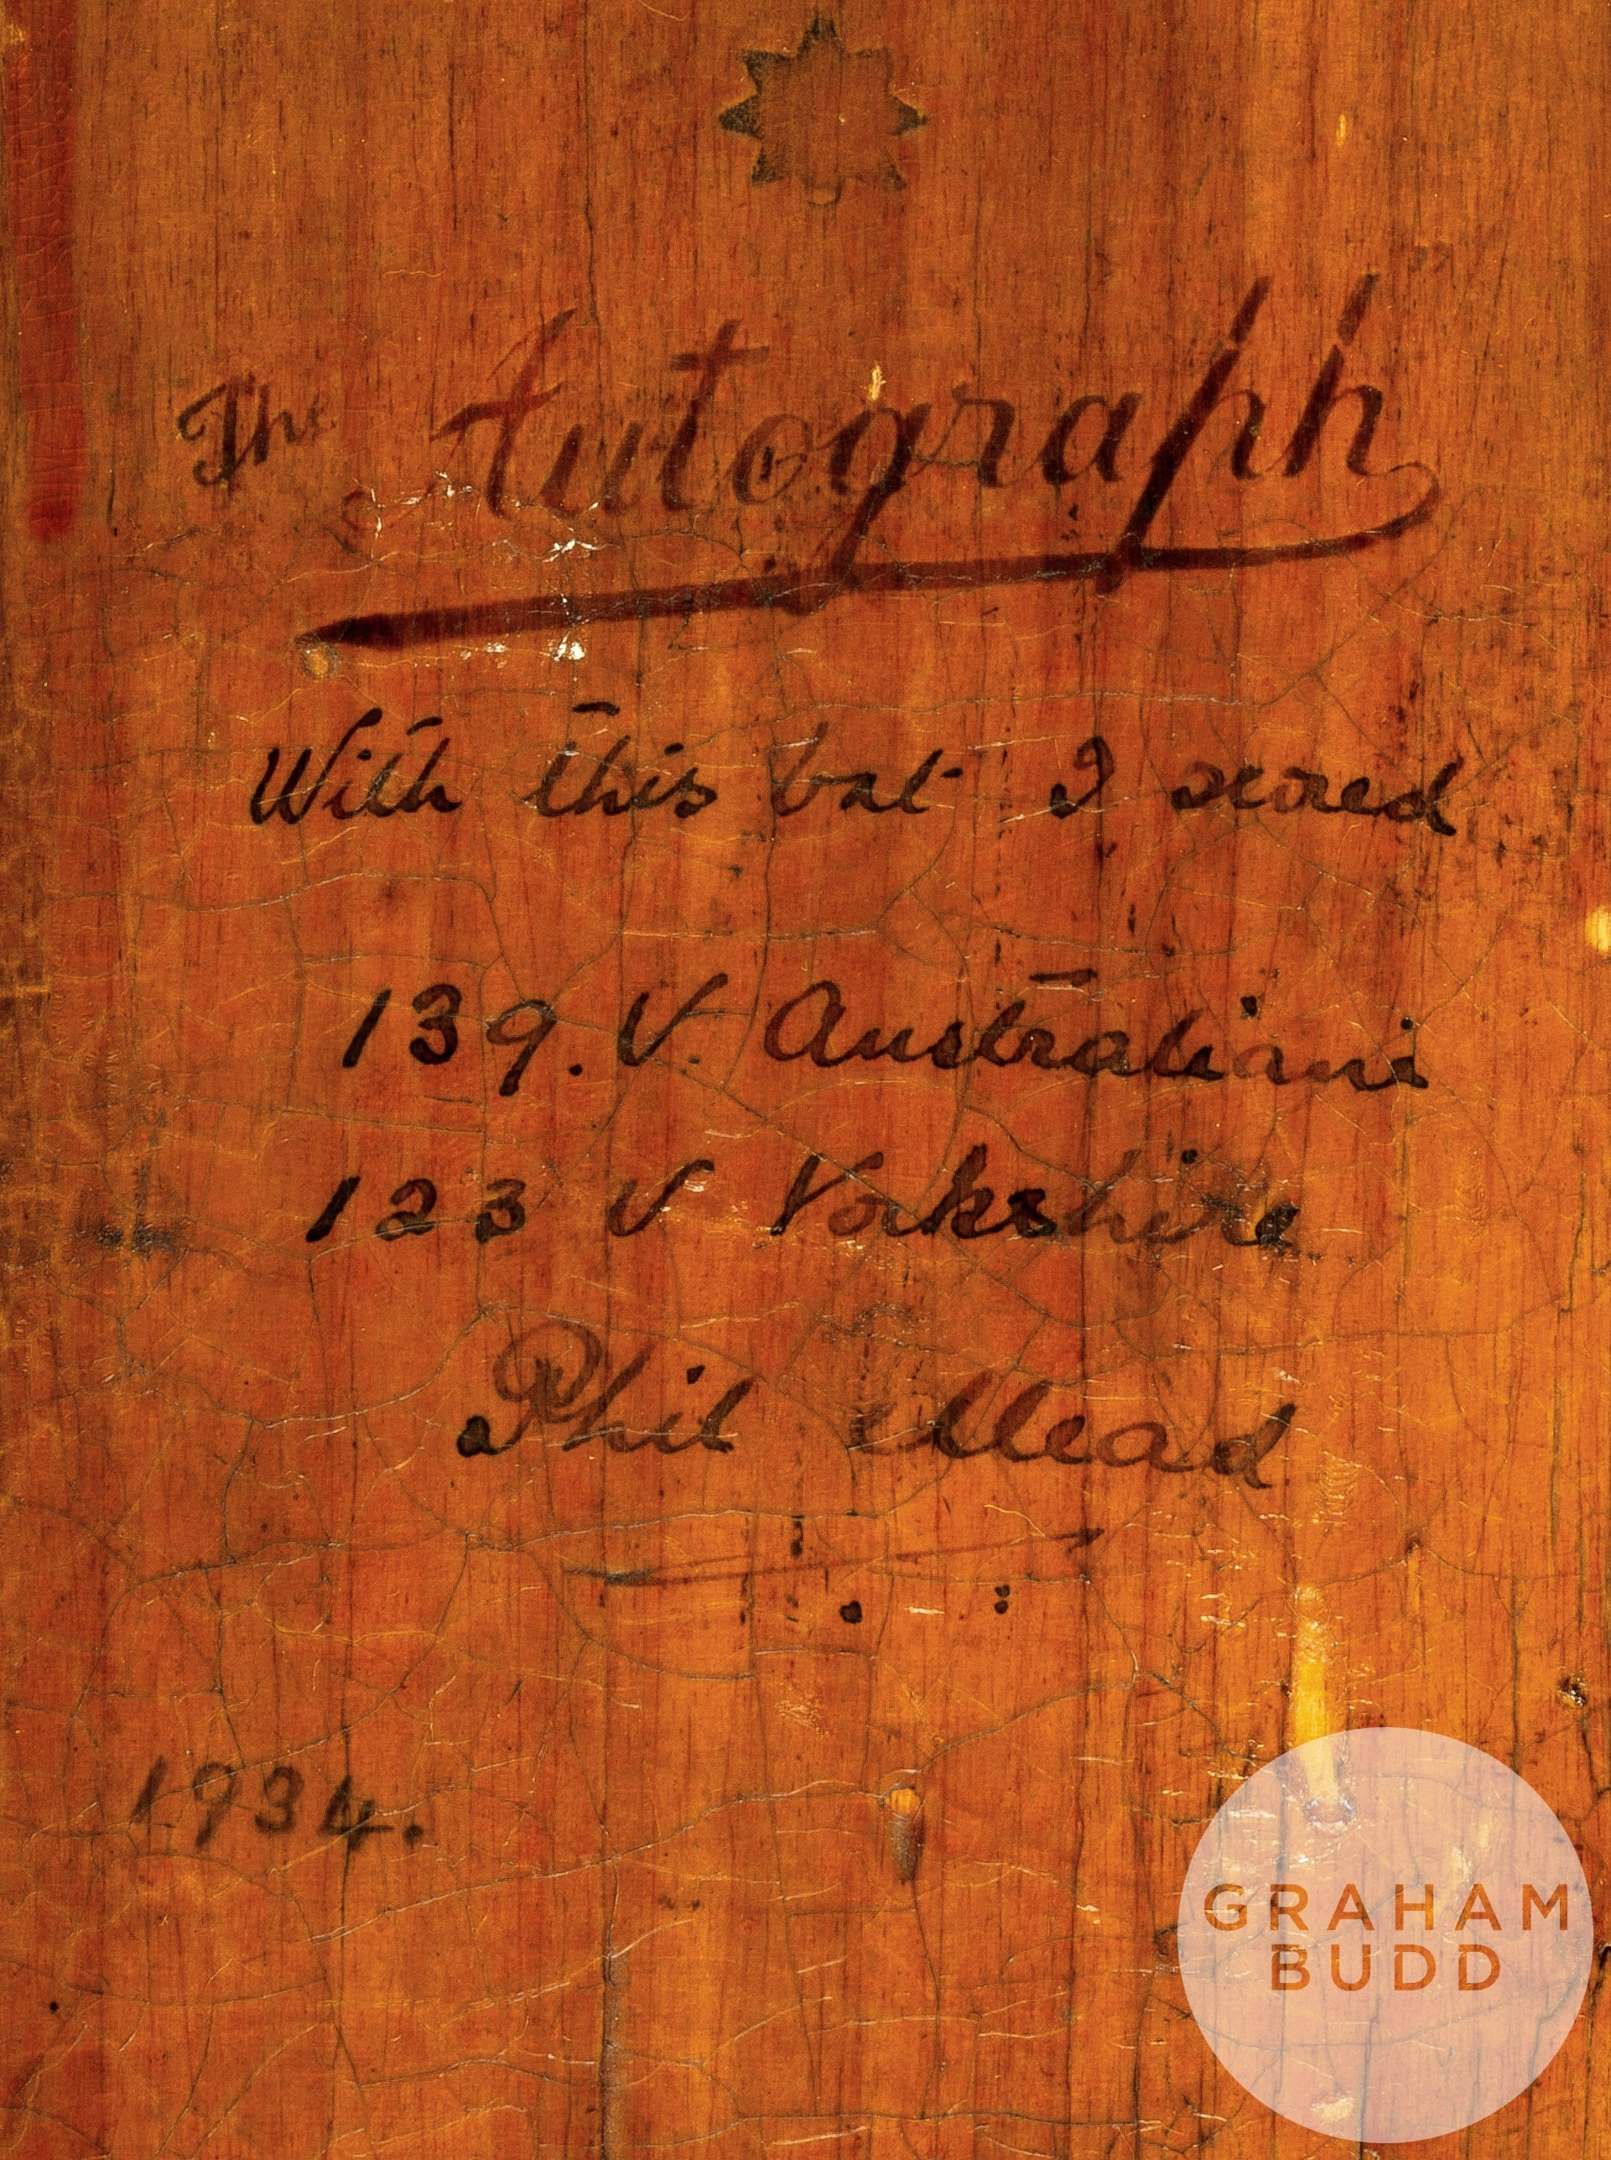 The Autograph
With this bat I scored
139. V. Australians
123 V Yorkshire
Phil Mead
1934.
GRAHAM
BUDD